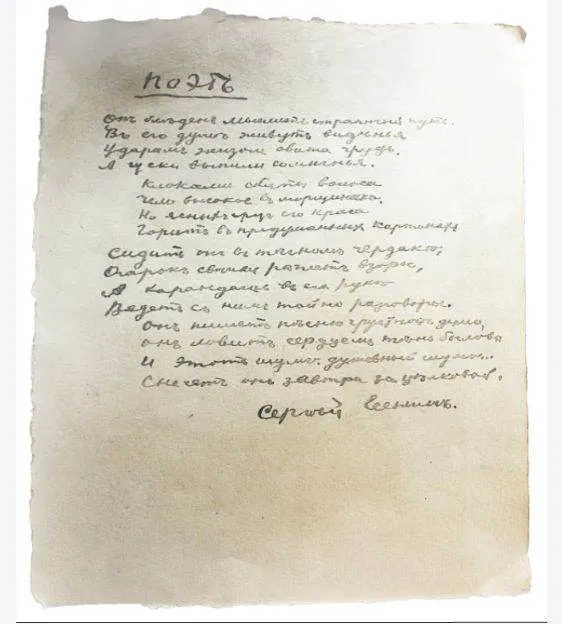 ПОЭТЪ
Онъ блѣденъ. Мыслитъ страшный путь.
Въ его душѣ живутъ видѣнья
Ударомъ жизни вбита грудь,
А щеки выпили сомнѣнья.
Клоками сбиты волоса
Чело высокое въ морщинахъ,
Но ясныхъ грезъ его краса
Горитъ въ продуманныхъ картинахъ
Сидитъ онъ въ тѣсномъ чердакѣ,
Огарокъ свѣчки рѣжетъ взоры,
А карандашъ въ его рукѣ
Ведетъ съ нимъ тайно разговоры.
Онъ пишетъ пѣсню грустныхъ думъ,
онъ ловитъ сердцемъ тѣнь былова
И этотъ шумъ. душевный шумъ..
Снесетъ онъ завтра за цѣлковой.
Сергѣй Есенинъ.